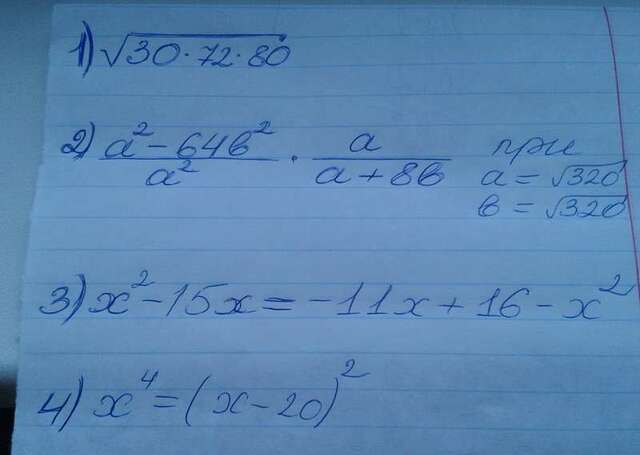 1) √30·72·80
2) (a² - 64в²)/a² · a/(a + 8в) при
a = √320
в = √320
3) x² - 15x = -11x + 16 - x²
4) x⁴ = (x - 20)²